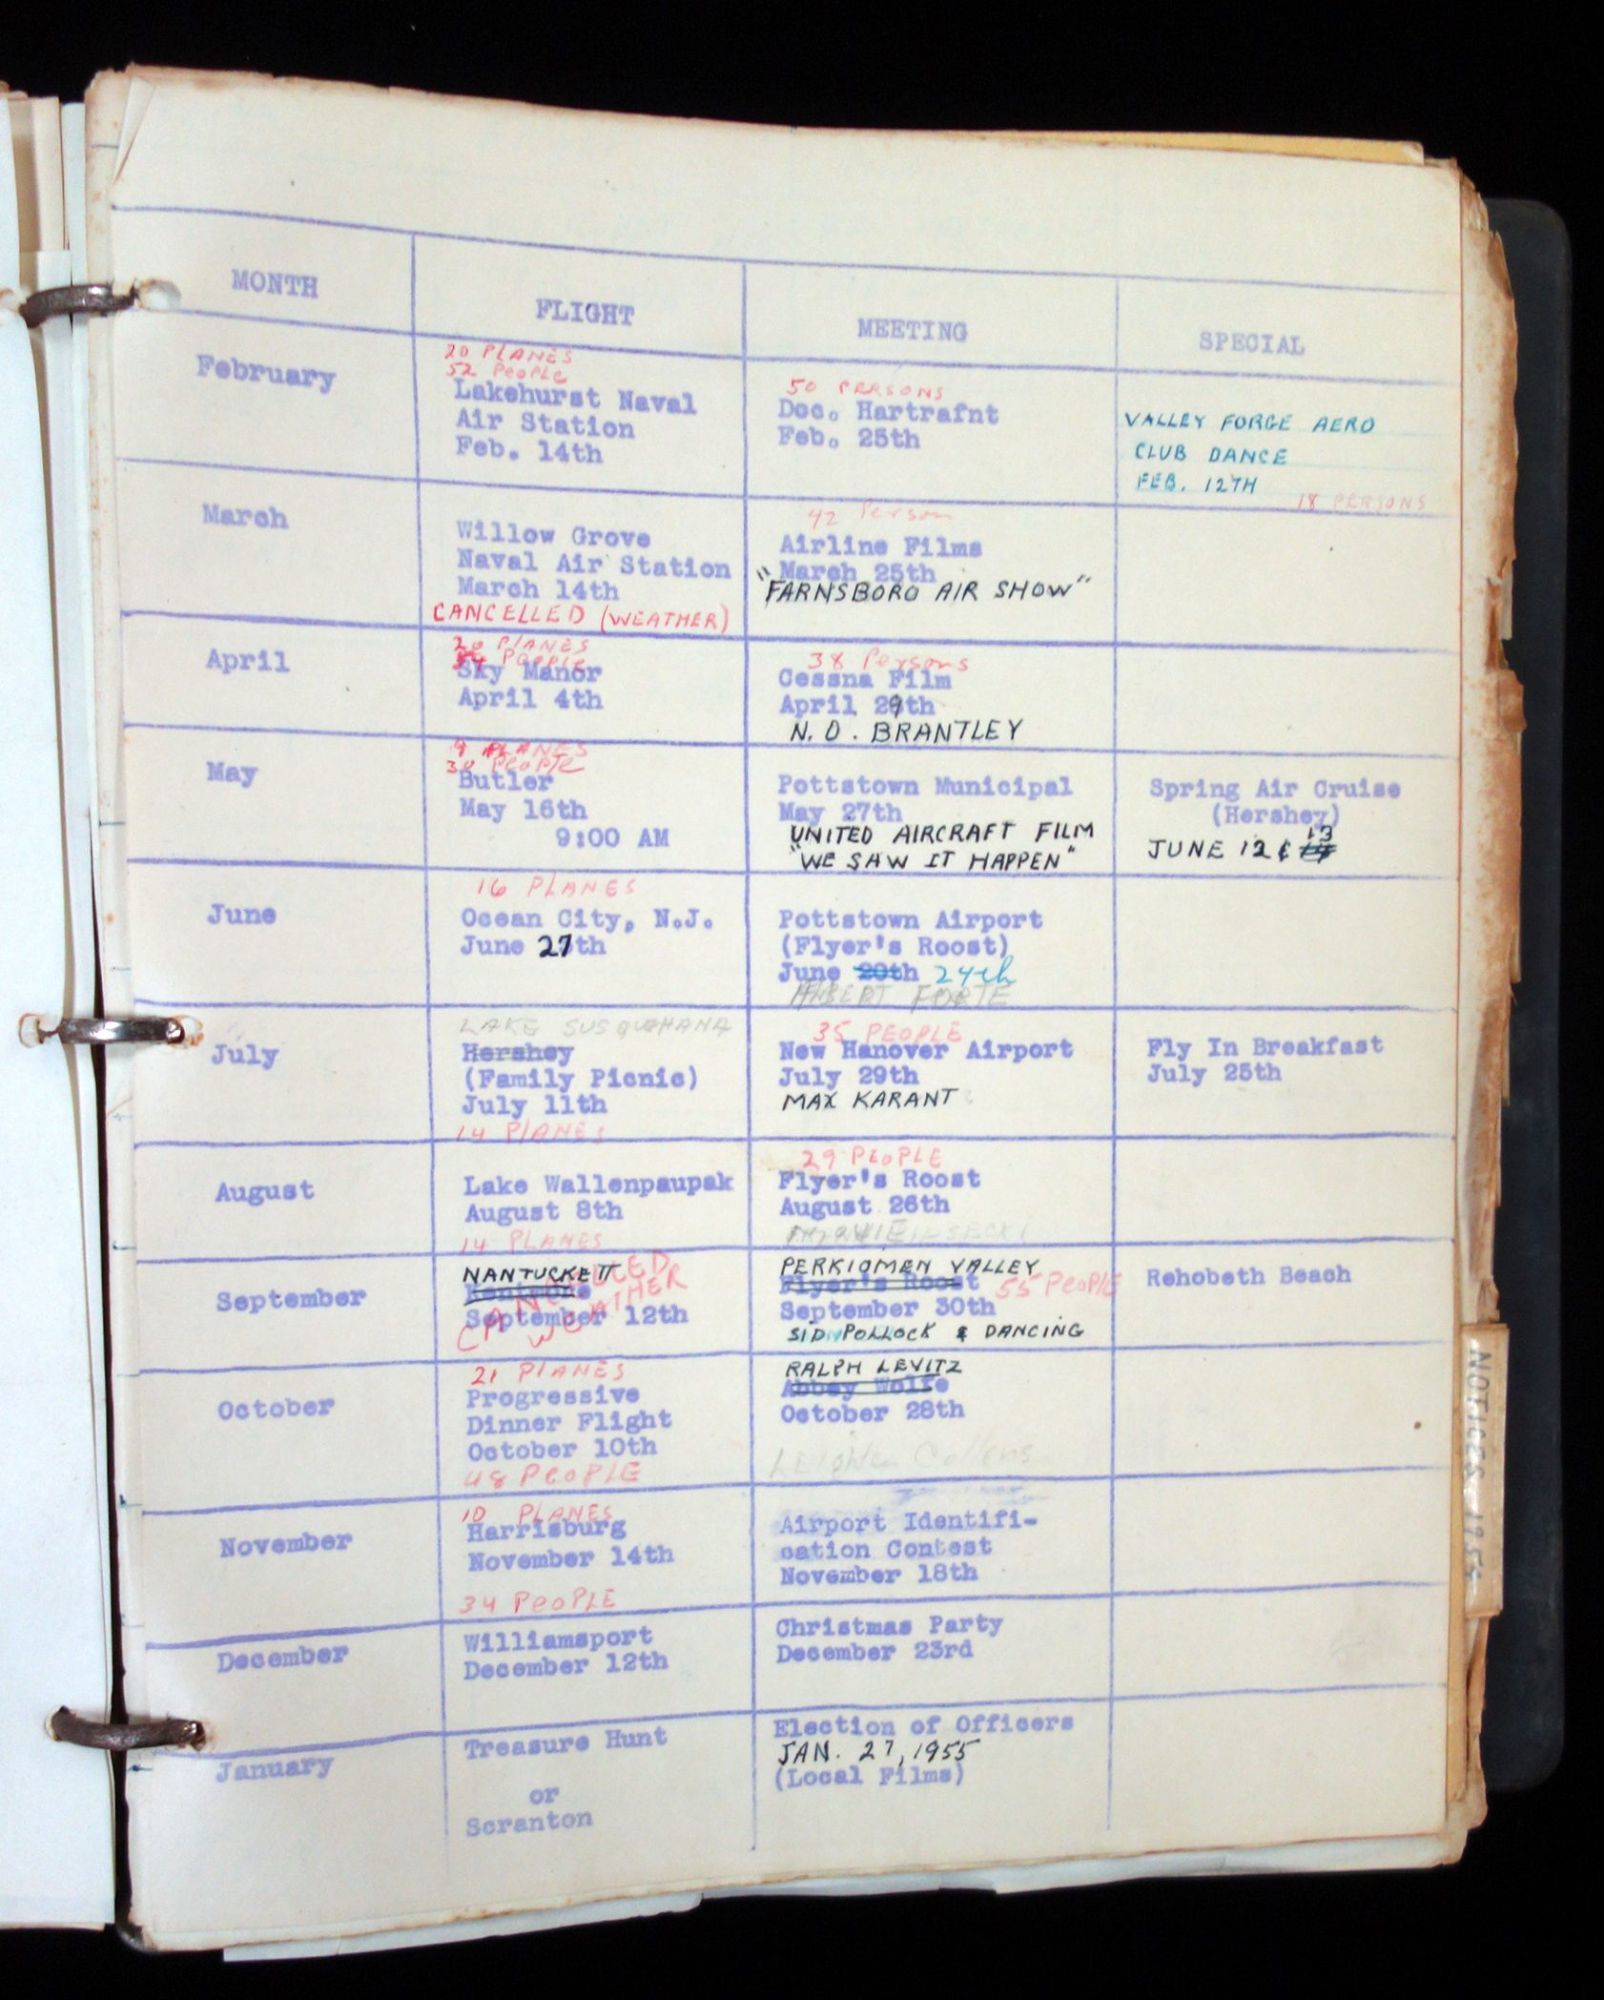 MONTH
FLIGHT
MEETING
SPECIAL
February
20 PLANES
52 PEOPLE
Lakehurst Naval
Air Station
Feb. 14th
50 PERSONS
Doc. Hartrafnt
Feb. 25th
VALLEY FORGE AERO
CLUB DANCE
FEB. 12TH
18 PERSONS
March
Willow Grove
Naval Air Station
March 14th
CANCELLED (WEATHER)
42 Person
Airline Films
March 25th
"FARNSBORO AIR SHOW"
April
20 PLANES
54 PEOPLE
Sky Manor
April 4th
38 Persons
Cessna Film
April 29th
N. O. BRANTLEY
May
9 PLANES
30 PEOPLE
Butler
May 16th
9:00 AM
Pottstown Municipal
May 27th
UNITED AIRCRAFT FILM
"WE SAW IT HAPPEN"
Spring Air Cruise
(Hershey)
13
JUNE 12 &
June
16 PLANES
Ocean City, N.J.
June 27th
Pottstown Airport
(Flyer's Roost)
June 20th 24th
FORTE
July
LAKE SUSQUAHANA
Hershey
(Family Picnic)
July 11th
14 PLANES
35 PEOPLE
New Hanover Airport
July 29th
MAX KARANT
Fly In Breakfast
July 25th
August
Lake Wallenpaupak
August 8th
14 PLANES
29 PEOPLE
Flyer's Roost
August 26th
September
NANTUCKETT
September 12th
CANCELLED
WEATHER
PERKIOMEN VALLEY
Flyer's Roost 55 PEOPLE
September 30th
SID POLLOCK & DANCING
Rehobeth Beach
October
21 PLANES
Progressive
Dinner Flight
October 10th
48 PEOPLE
RALPH LEVITZ
Abbey Wolfe
October 28th
November
10 PLANES
Harrisburg
November 14th
34 PEOPLE
Airport Identifi-
cation Contest
November 18th
December
Williamsport
December 12th
Christmas Party
December 23rd
January
Treasure Hunt
or
Scranton
Election of Officers
JAN. 27, 1955
(Local Films)
NOTICES